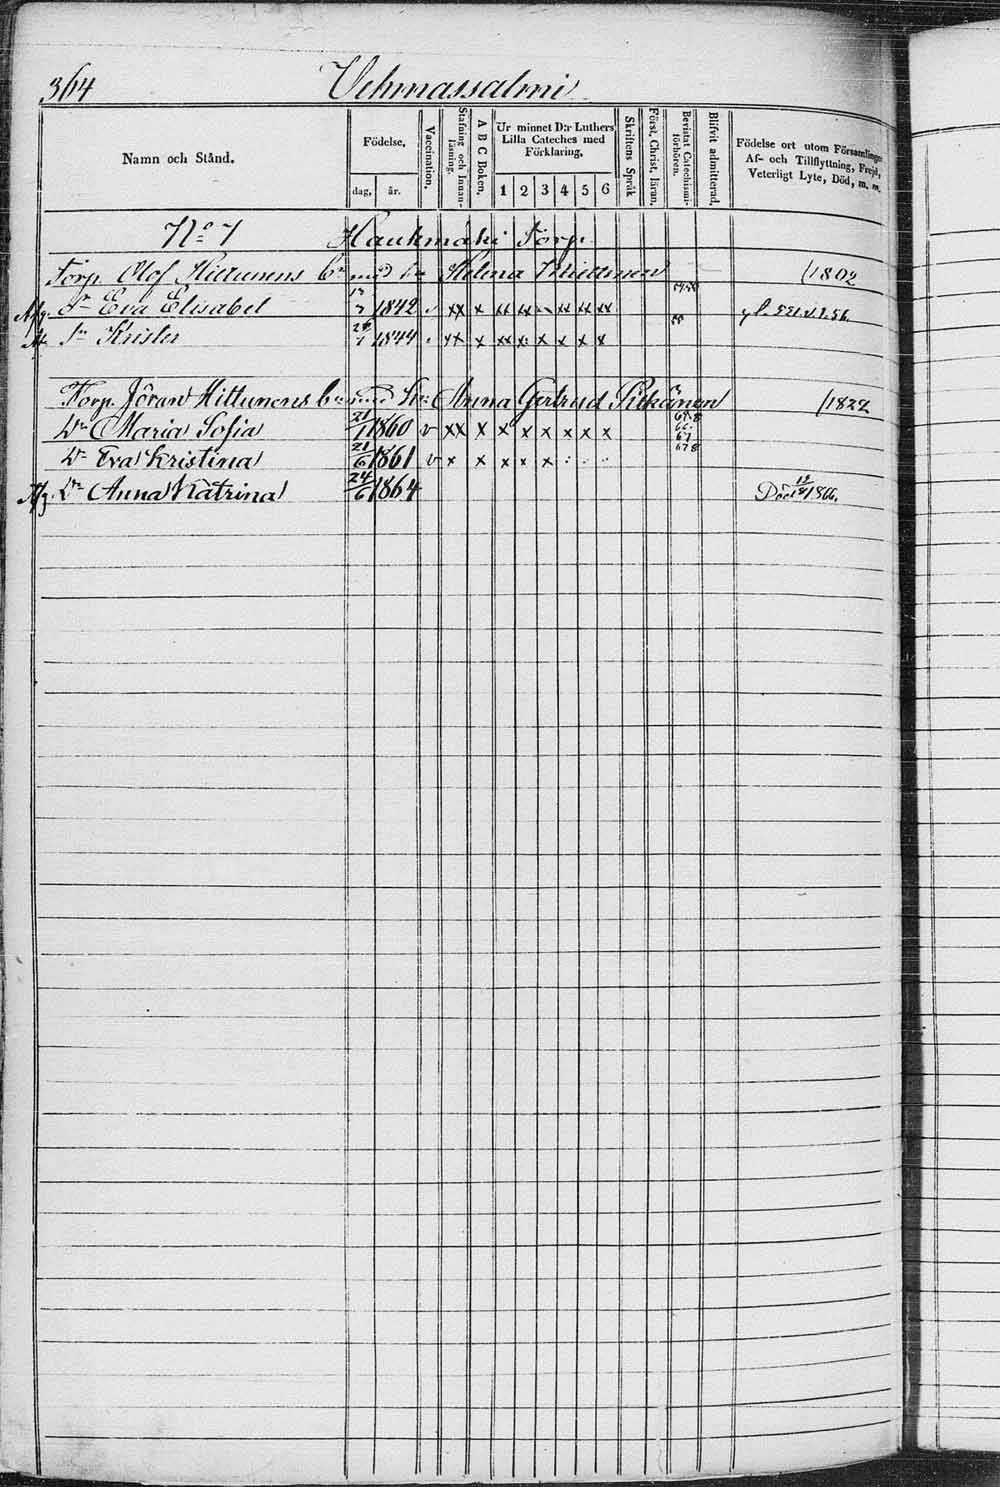 364 Vehmassalmi
Namn och Stånd.
Födelse,
dag, år.
Vaccination,
Stafning och Innan-läsning.
A B C Boken,
Ur minnet D:r Luthers
Lilla Cateches med
Förklaring,
1 2 3 4 5 6
Skriftens Språk
Först. Christ. läran,
Bevistat Catechismi-förhören.
Blifvit admitterad.
Födelse ort utom Församlingen
Af- och Tillflyttning, Frejd,
Veterligt Lyte, Död, m. m.
No 7 Haukmäki Torp
Torp. Olof Hittunens b:n med h:u Helena 1802
Afg. Dr Eva Elisabet 1842 v xx x
Sn Krister 1844 xx x
Torp. Jöran Hittunens b:n med Hu: Anna Gertrud Pitkänen 1822
Dr Maria Sofia 21/1 1860 v xx x x x x x x x
Dr Eva Kristina 21/6 1861 v x x x x x
Afg. Dr Anna Katrina 24/6 1864 Död 1866.